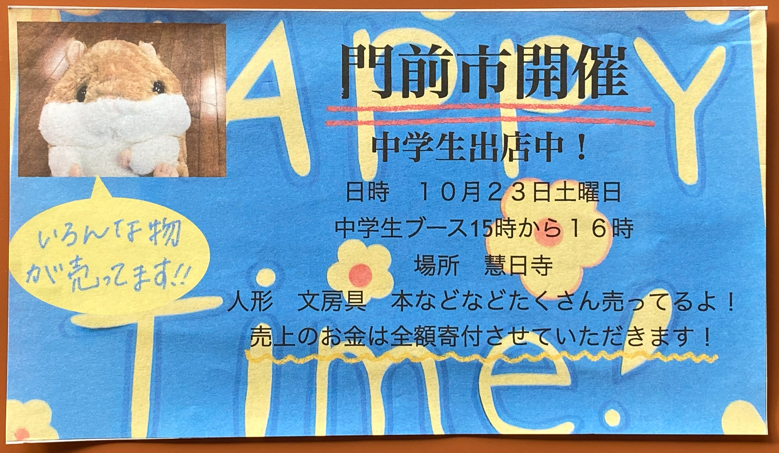 APPY
門前市開催
中学生出店中！
日時　１０月２３日土曜日
中学生ブース15時から１６時
場所　慧日寺
人形　文房具　本などなどたくさん売ってるよ！
売上のお金は全額寄付させていただきます！
いろんな物
が売ってます!!
Time!